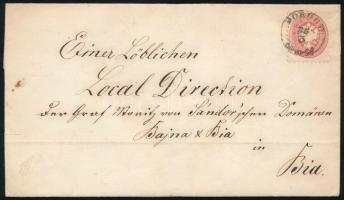 Einer Löblichen
Local Direction
der Graf Moritz von Sándor'schen Domänen
Bajna & Bia
in
Bia.